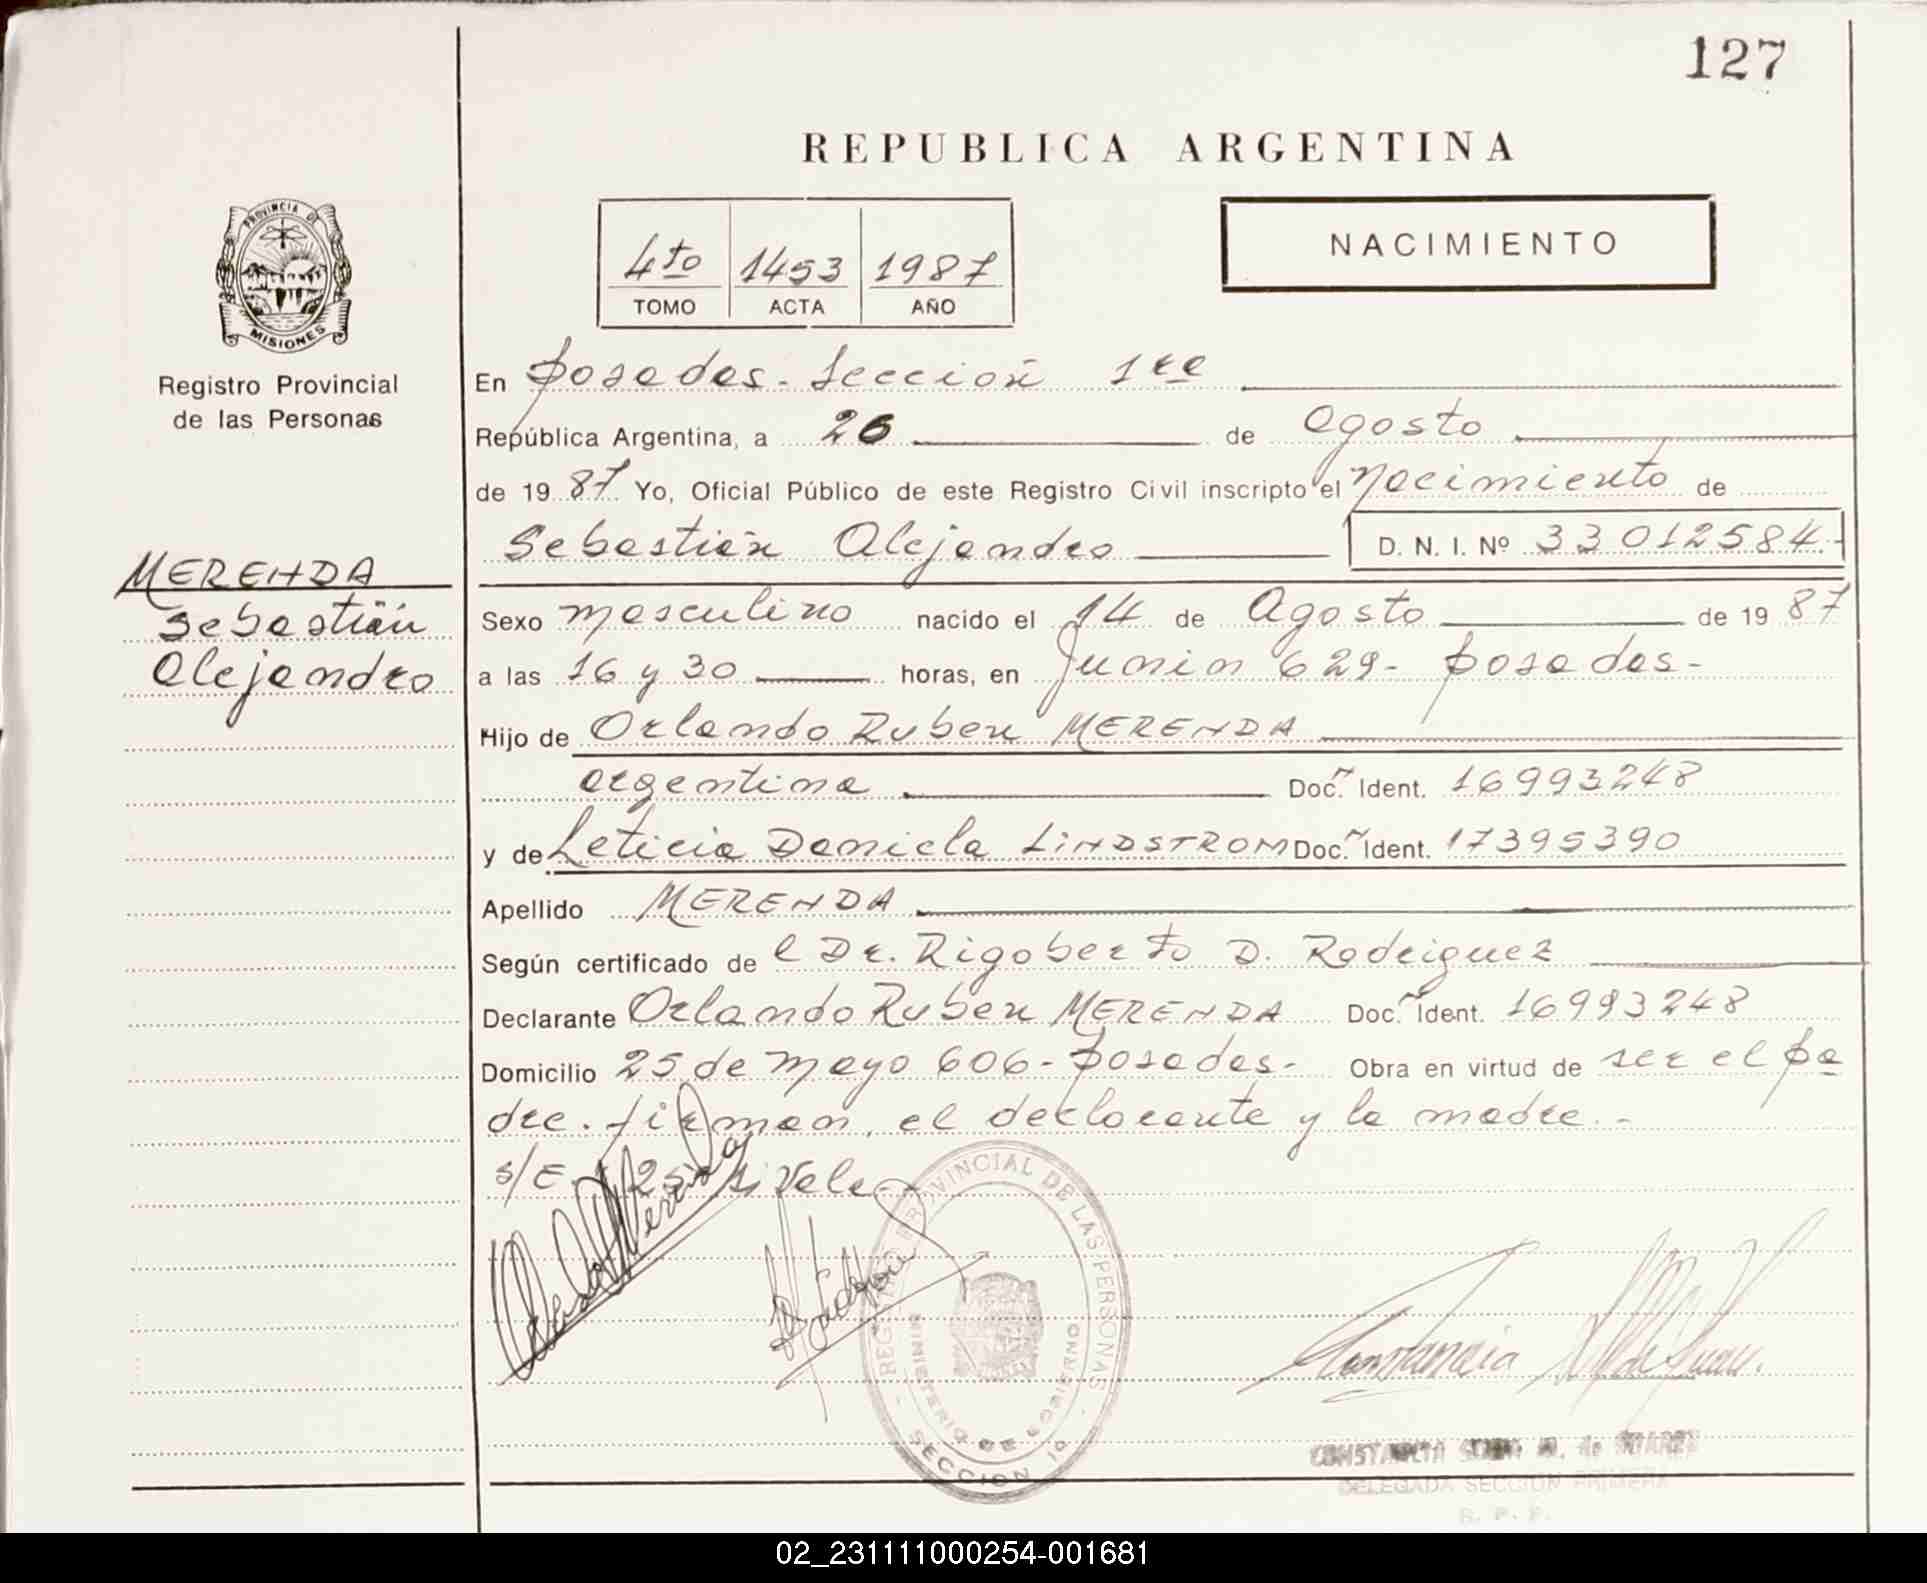 127
REPUBLICA ARGENTINA
PROVINCIA DE
MISIONES
Registro Provincial
de las Personas
4to 1453 1987
TOMO ACTA AÑO
NACIMIENTO
En Posadas - Sección 1ra
República Argentina, a 26 de Agosto
de 1987 Yo, Oficial Público de este Registro Civil inscripto el Nacimiento de
Sebastián Alejandro D. N. I. Nº 33 012584.-
MERENDA
Sebastián
Alejandro
Sexo masculino nacido el 14 de Agosto de 1987
a las 16 y 30 horas, en Junin 629- Posadas-
Hijo de Orlando Ruben MERENDA
argentina Doc. Ident. 16993248
y de Leticia Daniela LINDSTROM Doc. Ident. 17395390
Apellido MERENDA
Según certificado de el Dr. Rigoberto D. Rodriguez
Declarante Orlando Ruben MERENDA Doc. Ident. 16993248
Domicilio 25 de Mayo 606- Posadas- Obra en virtud de ser el pa
dre. firman, el declarante y la madre.-
s/E 25 Vale
REGISTRO PROVINCIAL DE LAS PERSONAS
MINISTERIO DE GOBIERNO
SECCION 1a
CONSTANCIA M. de SUAREZ
DELEGADA SECCION PRIMERA
R. P. P.
02_231111000254-001681